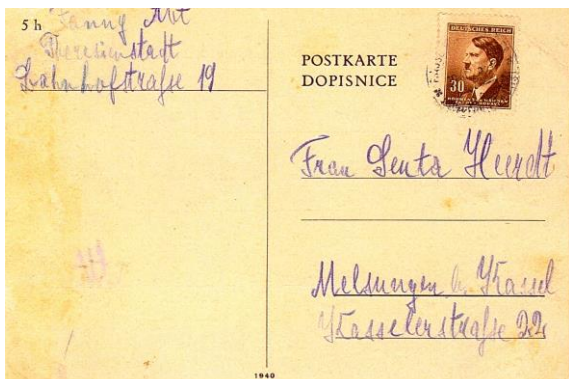 5 h
Fanny Abt
Theresienstadt
Bahnhofstraße 19
POSTKARTE
DOPISNICE
DEUTSCHES REICH
30
Frau Senta Heerdt
Melsungen b. Kassel
Kasselerstraße 22
1940